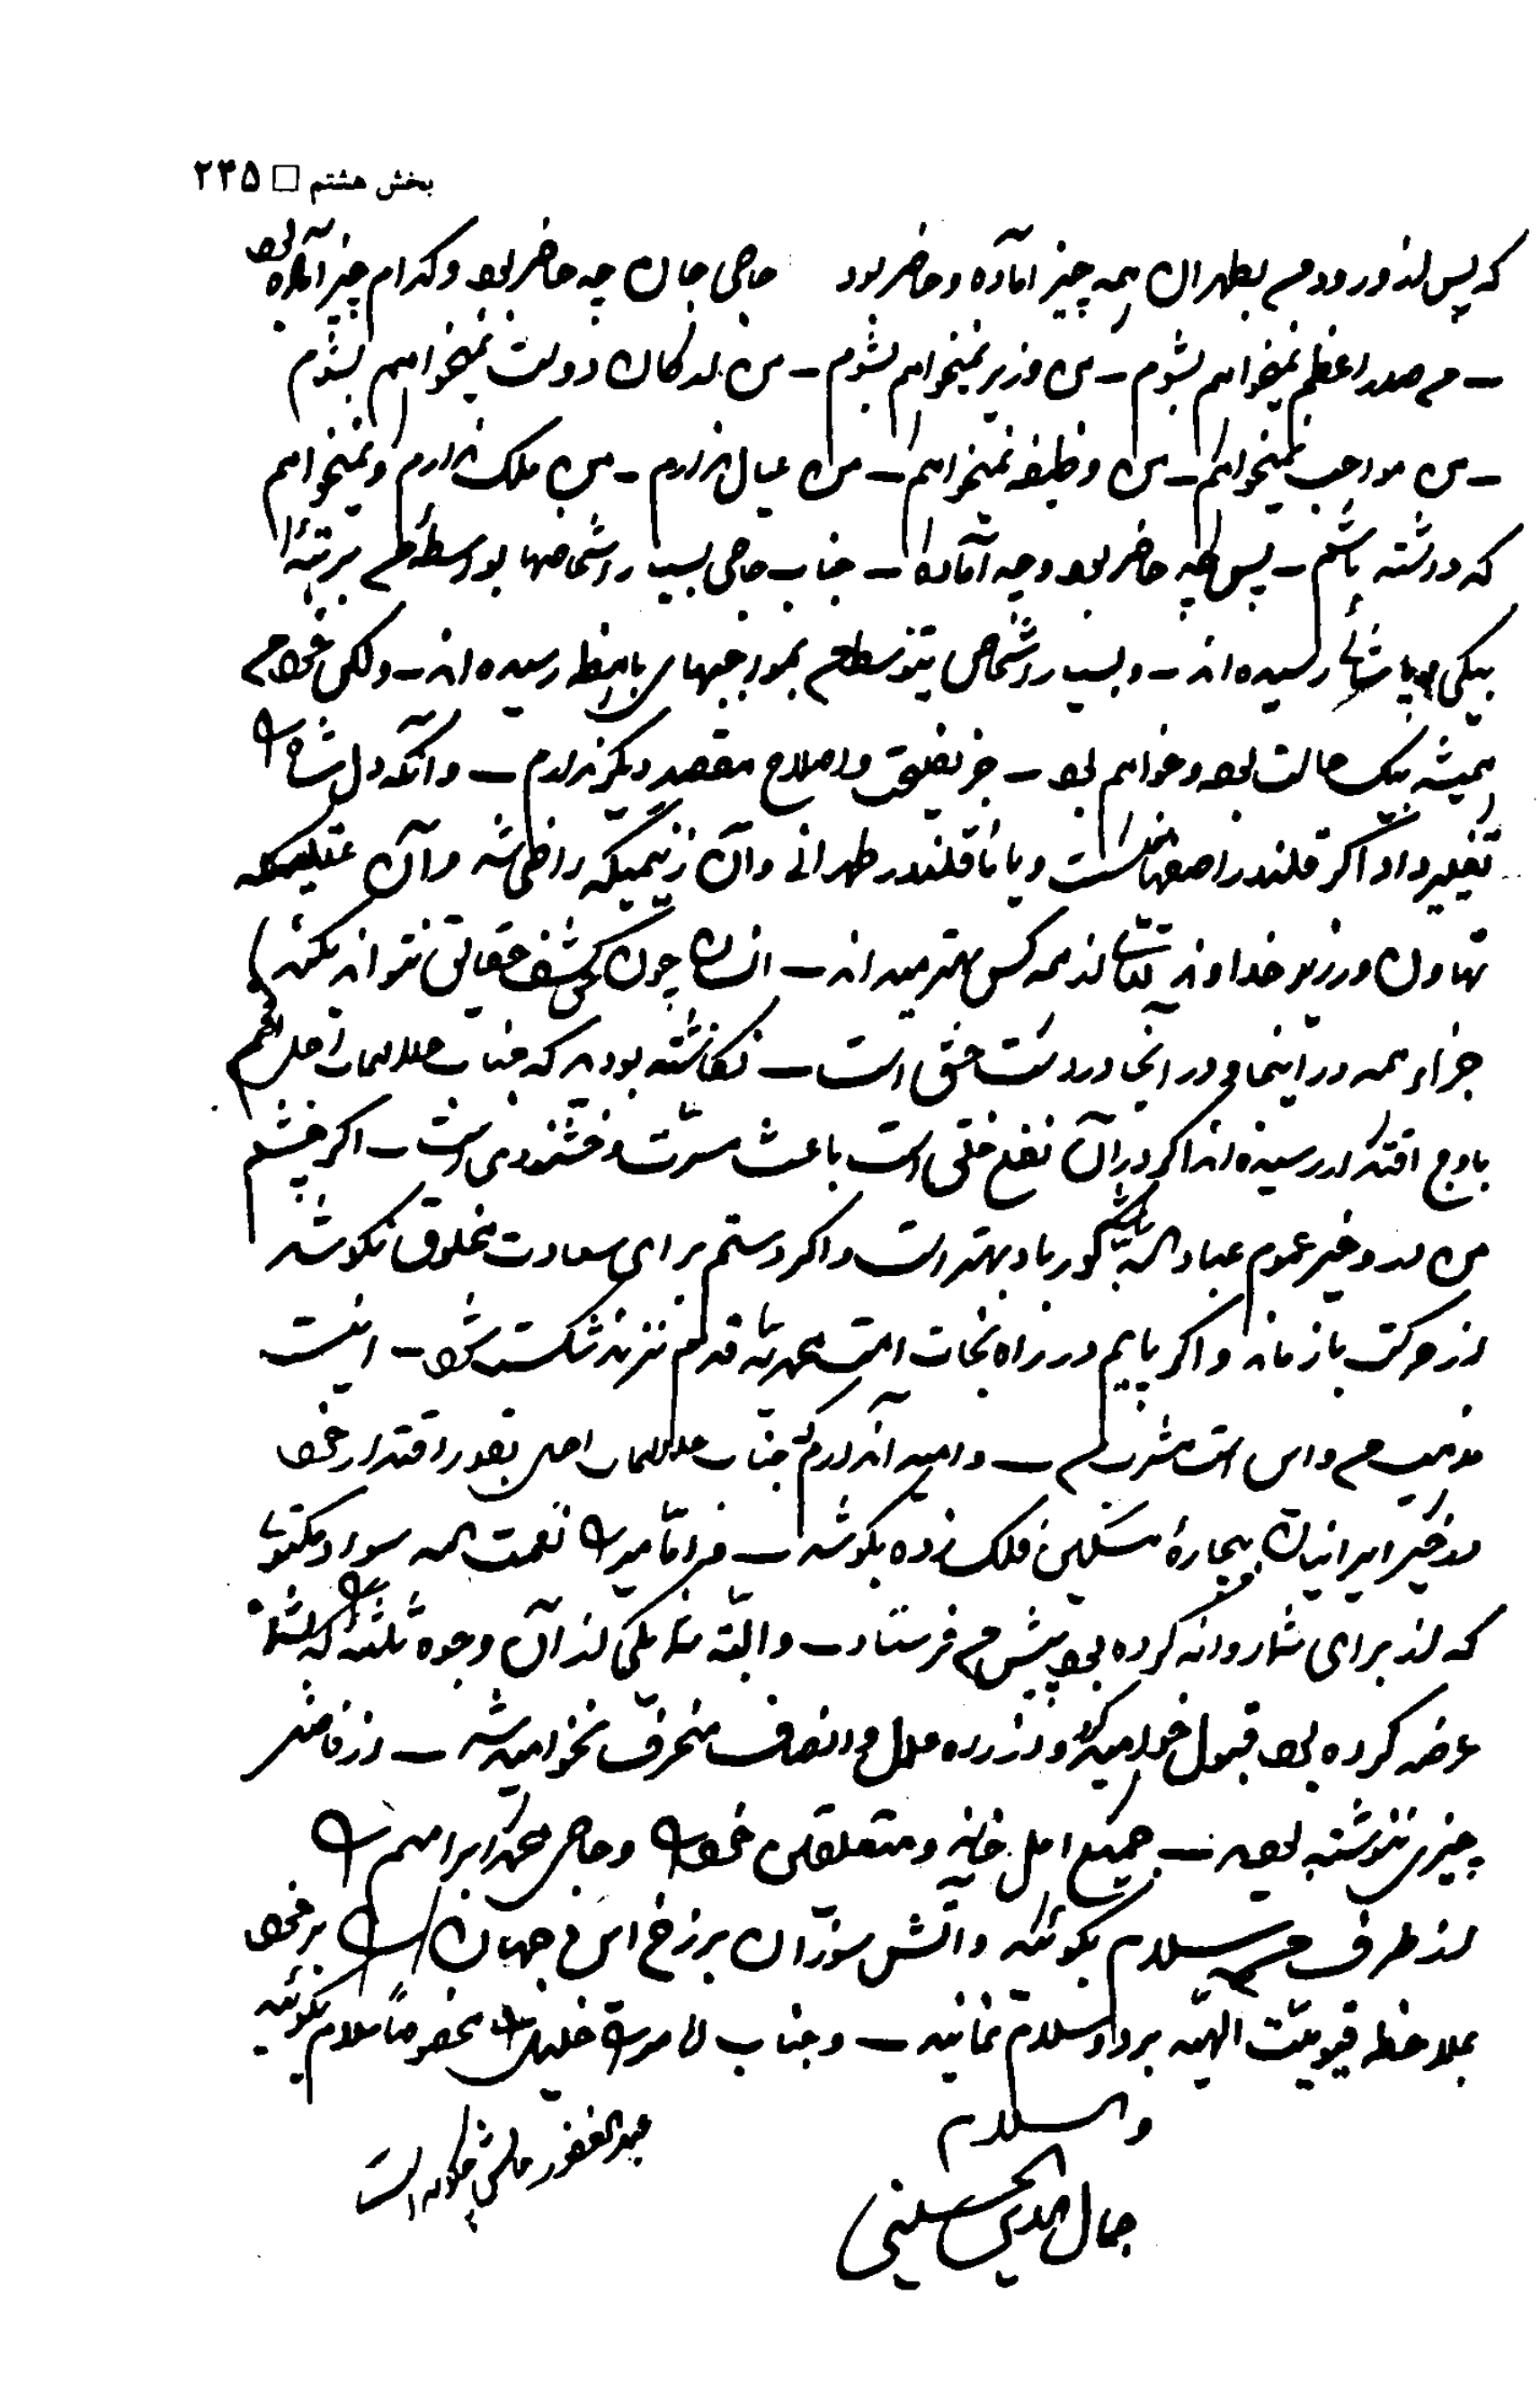 بخش هشتم □ ۲۳۵
که پس از ورود من بطهران همه چیز آماده و حاضر بود حاجی جان چه حاضر بود و کدام چیز آماده بود
– من صدر اعظم نمیخواهم بشوم – من وزیر نمیخواهم بشوم – من ارکان دولت نمیخواهم بشوم
– من مواجب نمیخواهم – من وظیفه نمیخواهم – من عیال ندارم – من ملک ندارم و نمیخواهم
که داشته باشم – پس چه حاضر بود و چه آماده – جناب حاجی بسیار اشخاصها بواسطه من برتبهٔ
بیکی و پاشائی رسیده اند – و بسیار اشخاص بتوسط من بمواجبهای باهظ رسیده اند – ولکن خودم
همیشه بیک حالت بوده و خواهم بود – جز نصیحت و اصلاح مقصد دیگر ندارم – و آنکه دل شاه را
تغییر داد اگر قلندر اصفهانست و یا نا قلندر طهرانی و آن زنیمیکه راضی شد و آن عتلیکه
تهاون ورزید خداوند تعالی از همه کس بهتر میداند – انسان چون کشف حقایق نتواند بکند
جزاء همه در اینجا و در آنجا در دست حق است – نگاشته بودید که جناب اجل
باوج اقتدار رسیده اند اگر در آن نفع خلق است باعث مسرت و خشنودی است – اگر چشم
من در خیر عموم عباد الله نباشد کور باد بهتر است و اگر دستم برای سعادت مخلوق نکوشد
از حرکت باز ماند و اگر پایم در راه نجات امت محمدیه قدم نزند شکسته شود – اینست
مذهب من و این است مشرب من – و امید آن دارم که جناب اجل بقدر اقتدار خود
در خیر ایرانیان بیچارهٔ مسکین فلک زده بکوشد – میرزا نعمت الله سواد مکتوب
که از برای شما روانه کرده بود پیش من فرستاد – و البته شما یکی از آن وجوه ثلثه را که
عرض کرده بود قبول خواهید کرد و از راه عدل و انصاف منحرف نخواهید شد – از فاضل
چیزی ننوشته بودید – جمیع اهل خانه و متعلقین خود را و حاجی محمد ابراهیم را
از طرف من سلام بگوئید و آتش سوزان برزخ این جهان را بر خود
بملاحظه قیومیت الهیه برد و سلام نمائید – و جناب خلیل را مخصوصاً سلام بگوئید
والسلام
جمال الدین الحسینی